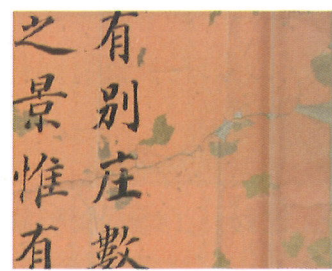 有别庄數
之景惟有